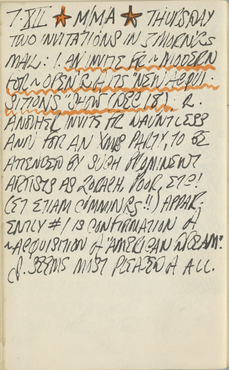 7·XII ★ MMA ★ THURSDAY
TWO INVITATIONS IN 'S MORNING'S
MAIL: 1. AN INVITE FR~MODERN
FOR~OPENING ITS "NEW ACQUI-
SITIONS" SHOW (DEC. ). 2.
ANOTHER INVITE FR
AND FOR AN XMAS PARTY, TO BE
ATTENDED BY SUCH PROMINENT
ARTISTS AS , ETC!
(ET ETIAM CUMMINGS!!) APPAR-
ENTLY #1 IS CONFIRMATION OF
~ACQUISITION OF "AMERICAN DREAM."
J. SEEMS MOST PLEASED OF ALL.